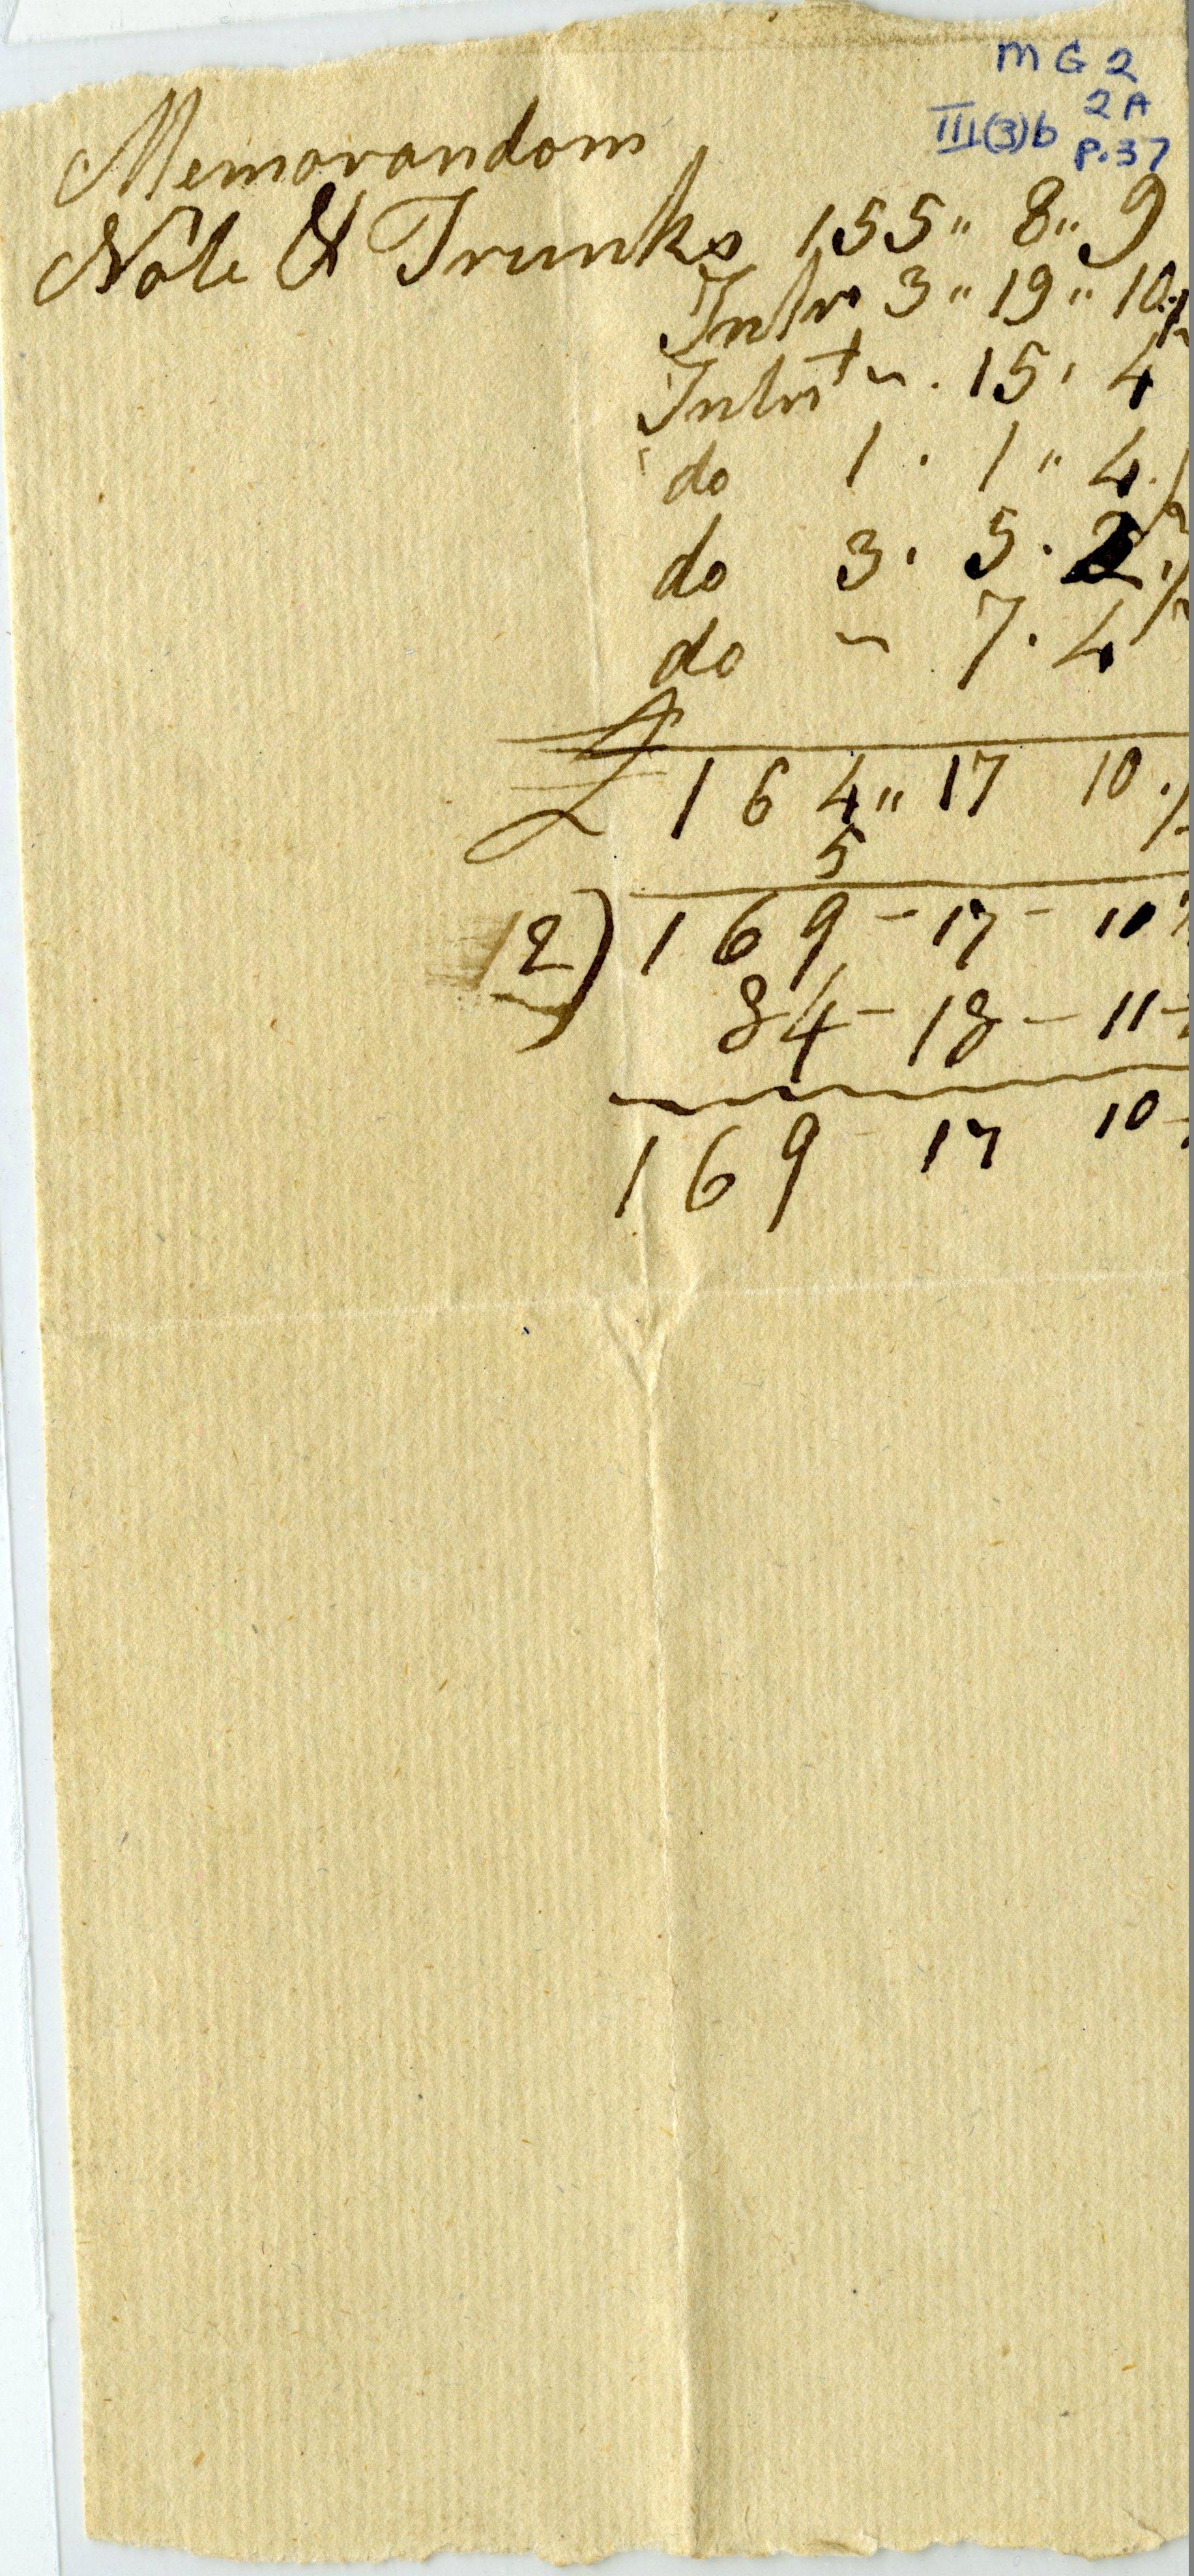 MG 2
2A
III(3)b P.37
Memorandom
Note & Trunks 155 " 8 " 9
Intrs 3 " 19 " 10 ½
Intrst ~ . 15 . 4
do 1 . 1 " 4 ½
do 3 . 5 . 2 ½
do ~ 7 . 4
£ 164 " 17 10 ½
5
12) 169 - 17 - 10 ½
84 - 18 - 11
169 17 10